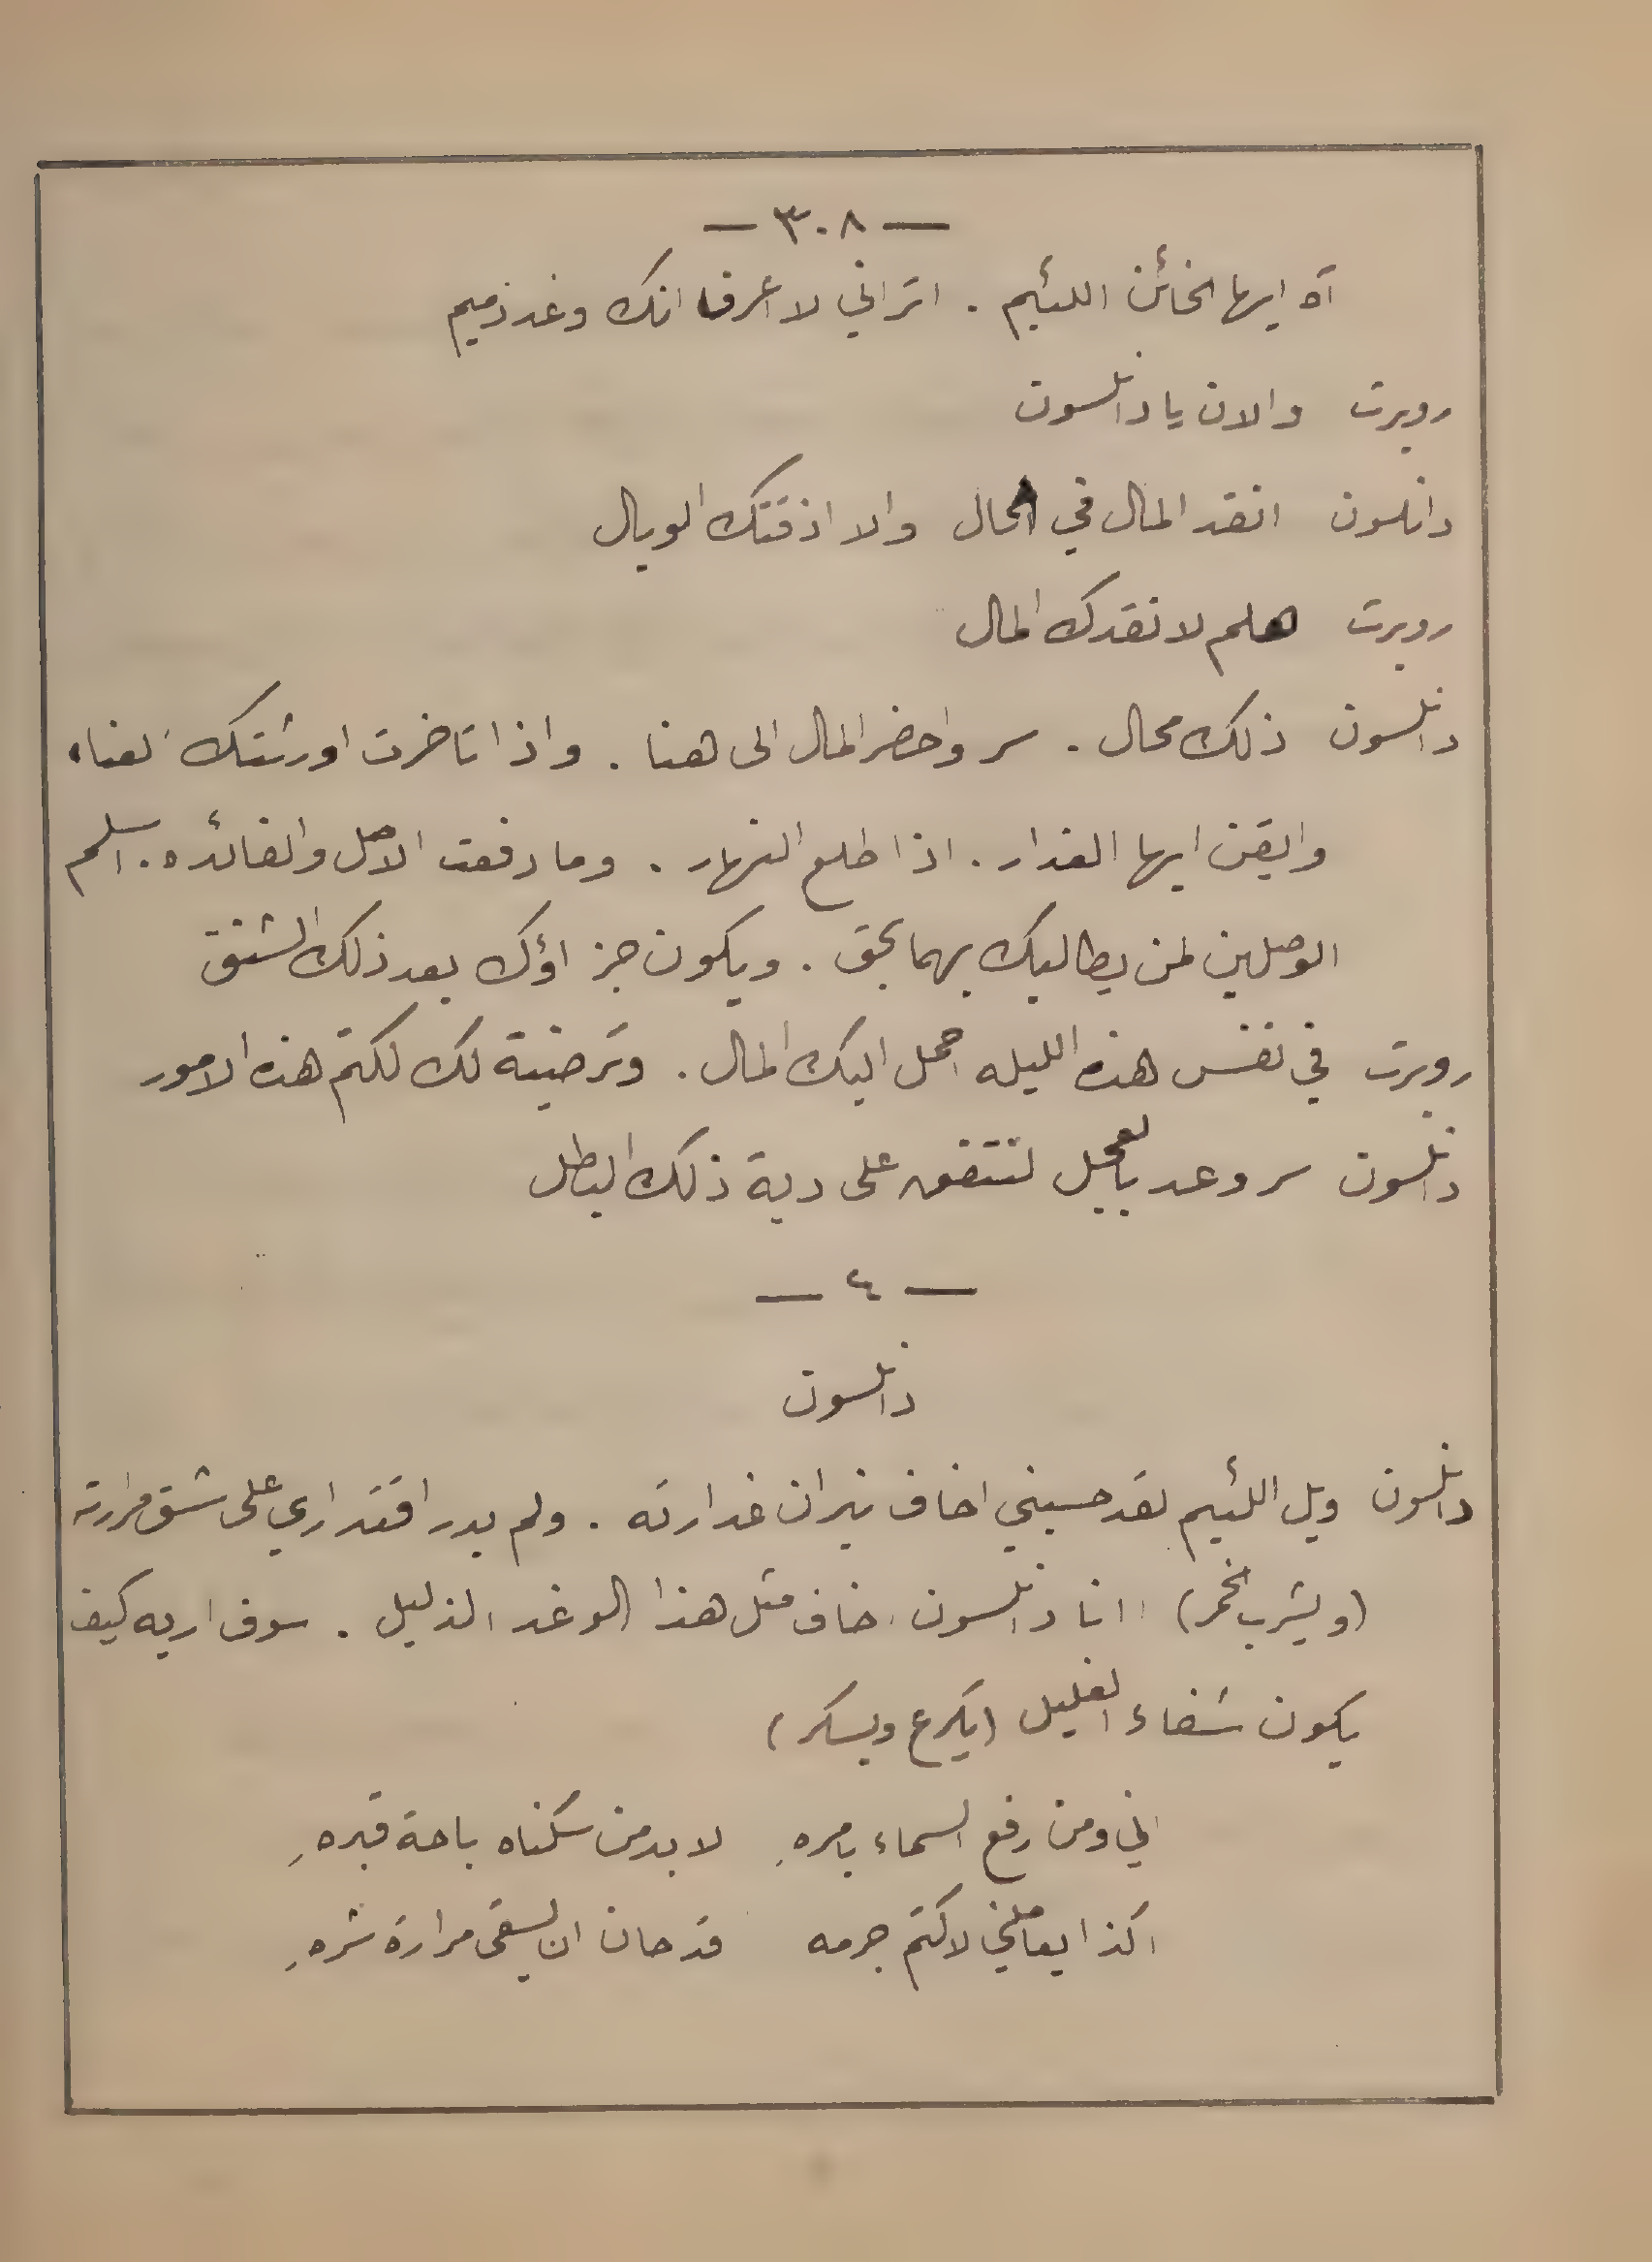 — ٣٠٨ —
آه ايها الخائن اللئيم . اتراني لا اعرف انك وغد ذميم
روبرت والان يا دانلسون
دانلسون انقد المال في الحال والا اذقتك الوبال
روبرت هلم لانقدك المال
دانلسون ذلك محال . سر واحضر المال الى هنا . واذا تاخرت اورثتك العناء
وايقن ايها الغدار . اذا طلع النهار . وما دفعت الاصل والفائده . اسلم
الوصلين لمن يطالبك بهما بحق . ويكون جزاؤك بعد ذلك الشنق
روبرت في نفس هذه الليله احمل اليك المال . وترضية لك لكتم هذه الامور
دانلسون سر وعد بالعجل لنتفق على دية ذلك البطل
— ٤ —
دانلسون
دانلسون ويل اللئيم لقد حسبني اخاف نيران غدارته . ولم يدر اقتداري على شق مرارته
(ويشرب الخمر) اانا دانلسون اخاف مثل هذا الوغد الذليل . سوف اريه كيف
يكون شفاء الغليل (يكرع ويسكر)
اني ومن رفع السماء بامرهِ لا بد من سكناه باحة قبرهِ
اكذا يعاملني لاكتم جرمه قد حان ان يسقى مرارة شرهِ